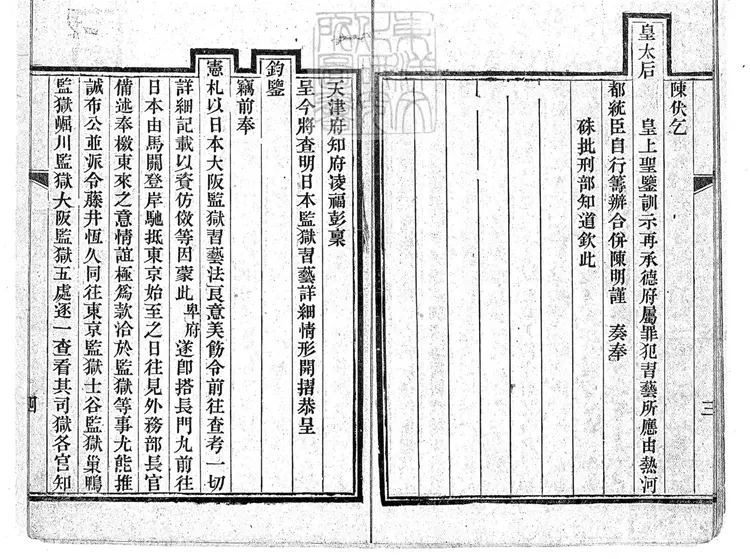 陳伏乞
皇太后　皇上聖鑒訓示再承德府屬罪犯習藝所應由熱河
都統臣自行籌辦合併陳明謹　奏奉
硃批刑部知道欽此
三
天津府知府凌福彭稟
呈今將查明日本監獄習藝詳細情形開摺恭呈
鈞鑒
竊前奉
憲札以日本大阪監獄習藝法良意美飭令前往查考一切
詳細記載以資仿傚等因蒙此卑府遂即搭長門丸前往
日本由馬關登岸馳抵東京始至之日往見外務部長官
備述奉檄東來之意情誼極為款洽於監獄等事尤能推
誠布公並派令藤井恆久同往東京監獄士谷監獄巢鴨
監獄崛川監獄大阪監獄五處逐一查看其司獄各官知
四